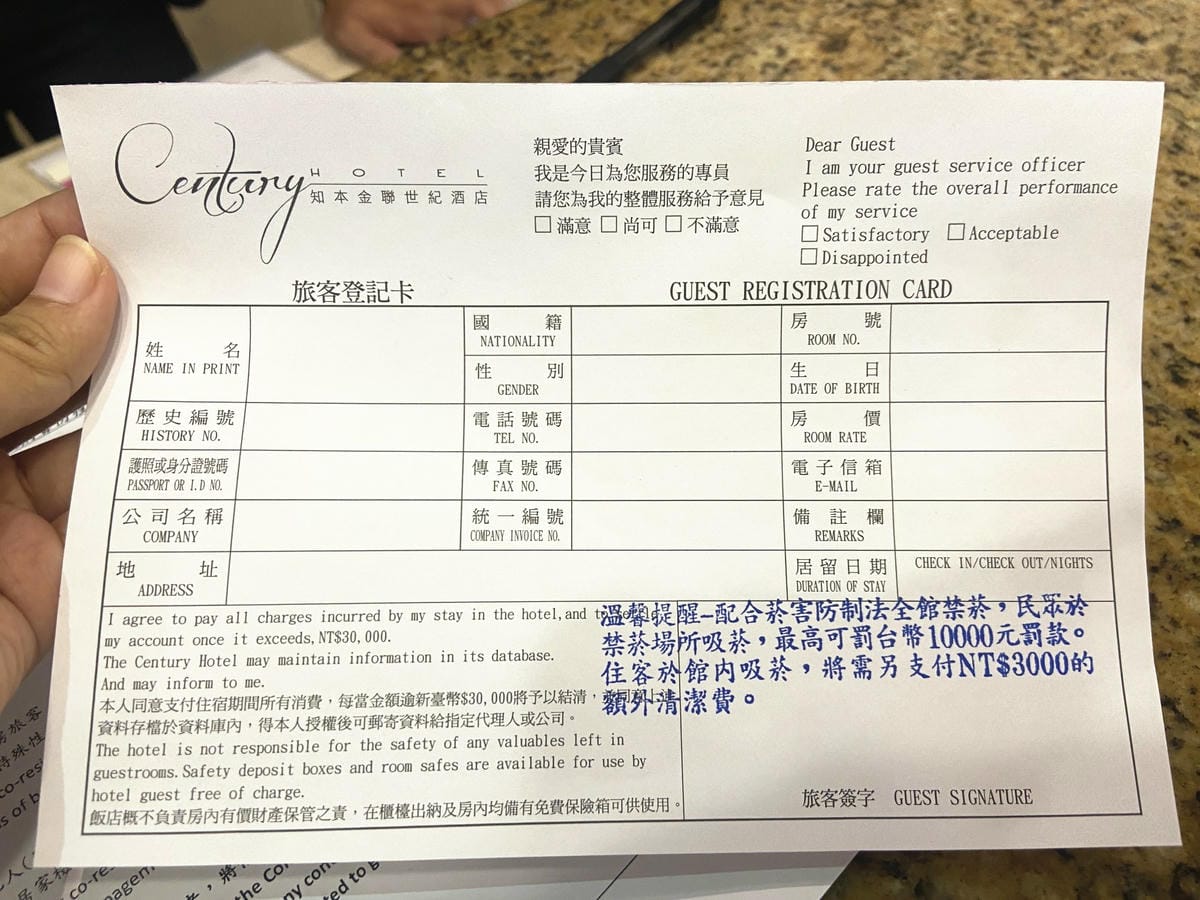 Century HOTEL
知本金聯世紀酒店
親愛的貴賓
我是今日為您服務的專員
請您為我的整體服務給予意見
□滿意 □尚可 □不滿意
Dear Guest
I am your guest service officer
Please rate the overall performance
of my service
□Satisfactory □Acceptable
□Disappointed
旅客登記卡 GUEST REGISTRATION CARD
姓名
NAME IN PRINT
國籍
NATIONALITY
房號
ROOM NO.
性別
GENDER
生日
DATE OF BIRTH
歷史編號
HISTORY NO.
電話號碼
TEL NO.
房價
ROOM RATE
護照或身分證號碼
PASSPORT OR I.D NO.
傳真號碼
FAX NO.
電子信箱
E-MAIL
公司名稱
COMPANY
統一編號
COMPANY INVOICE NO.
備註欄
REMARKS
地址
ADDRESS
居留日期
DURATION OF STAY
CHECK IN/CHECK OUT/NIGHTS
I agree to pay all charges incurred by my stay in the hotel,and to
my account once it exceeds,NT$30,000.
The Century Hotel may maintain information in its database.
And may inform to me.
本人同意支付住宿期間所有消費，每當金額逾新臺幣$30,000將予以結清，
資料存檔於資料庫內，得本人授權後可郵寄資料給指定代理人或公司。
The hotel is not responsible for the safety of any valuables left in
guestrooms.Safety deposit boxes and room safes are available for use by
hotel guest free of charge.
飯店概不負責房內有價財產保管之責，在櫃檯出納及房內均備有免費保險箱可供使用。
溫馨提醒-配合菸害防制法全館禁菸，民眾於
禁菸場所吸菸，最高可罰台幣10000元罰款。
住客於館內吸菸，將需另支付NT$3000的
額外清潔費。
旅客簽字 GUEST SIGNATURE